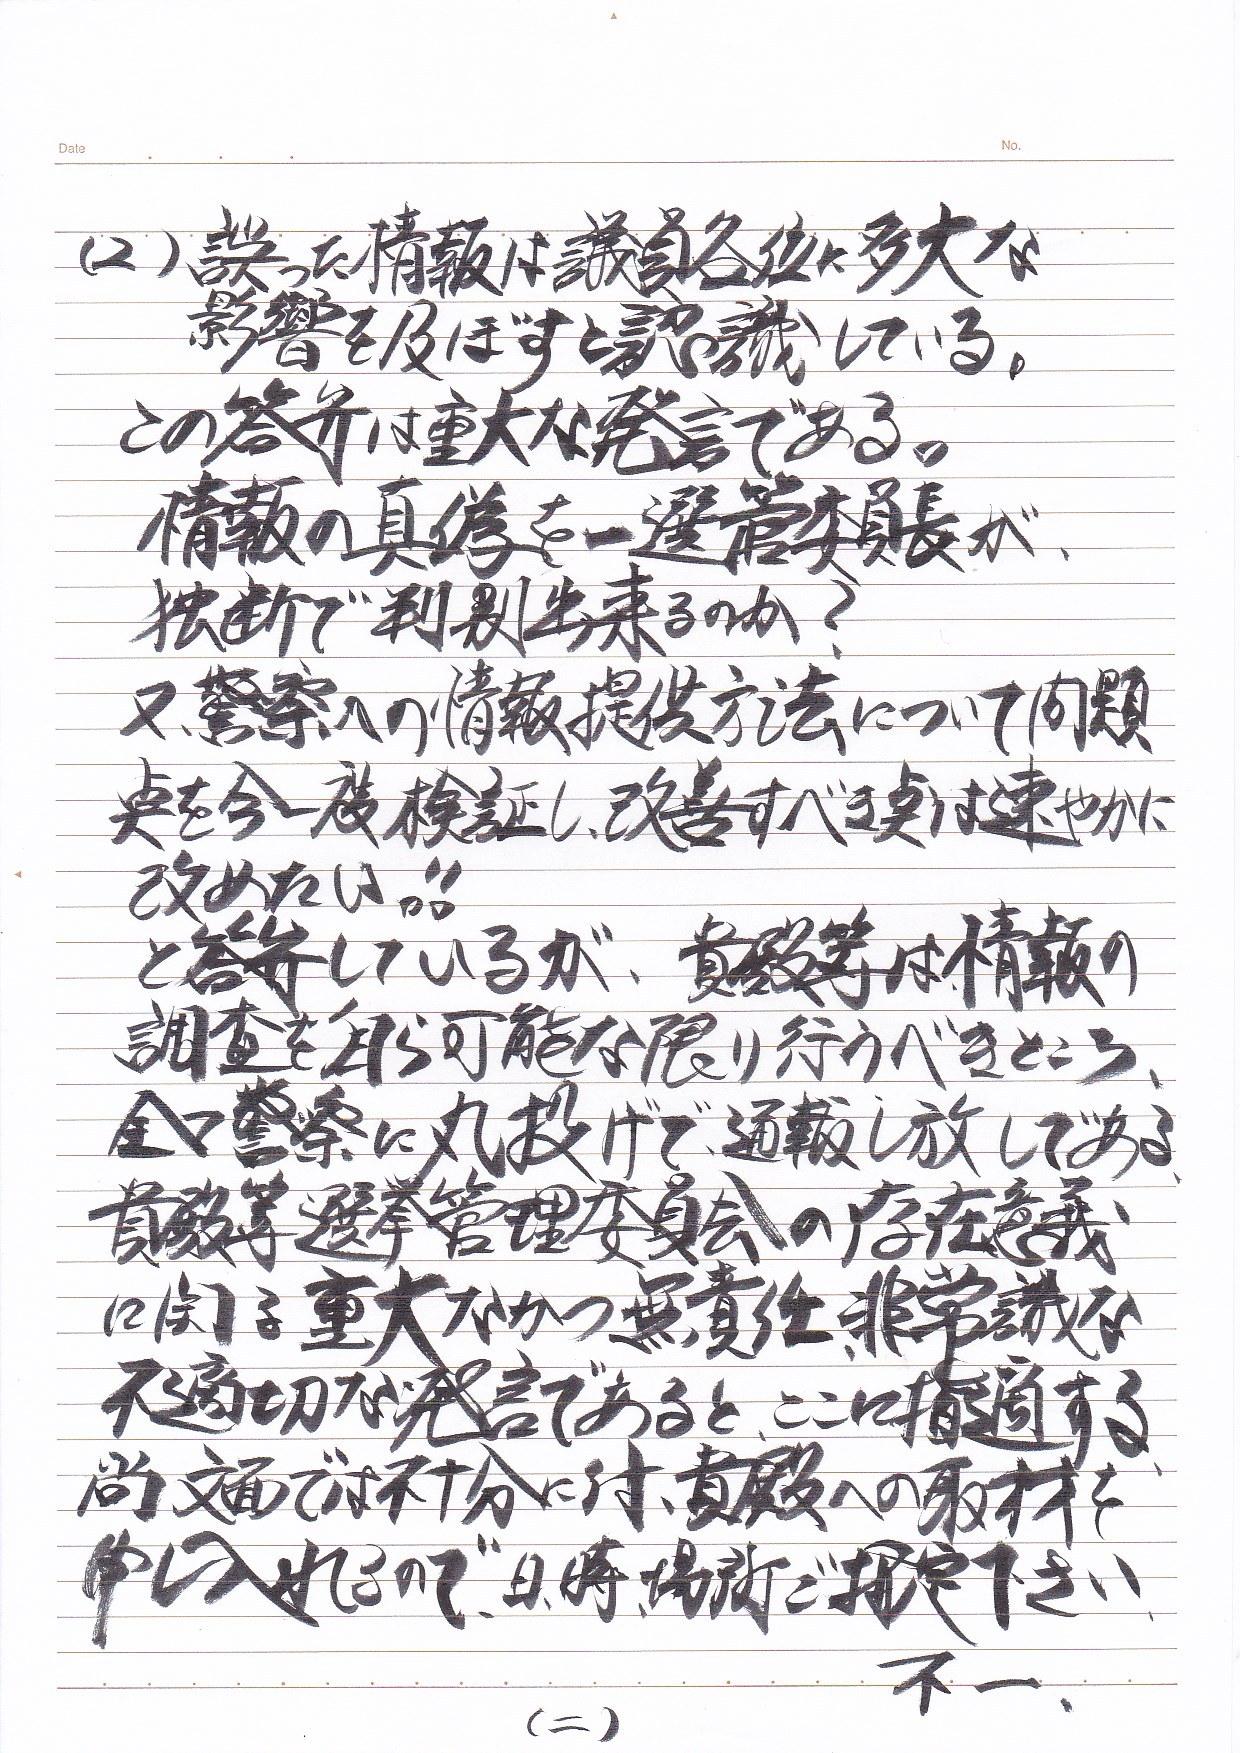 Date
No.
(2)誤った情報は議員各位に多大な
影響を及ぼすと認識している。
この答弁は重大な発言である。
情報の真偽を一選管委員長が、
独断で判別出来るのか?
又、警察への情報提供方法について問題
点を今一度検証し、改善すべき点は速やかに
改めたい。〟
と答弁しているが、貴殿等は、情報の
調査を自ら可能な限り行うべきところ、
全て警察に丸投げで、通報し放しである、
貴殿等選挙管理委員会の存在意義、
に関る重大なかつ無責任、非常識な
不適切な発言であると、ここに指摘する、
尚、文面では不十分に付、貴殿への取材を
申し入れるので、日、時、場所ご指定下さい、
不一、
(二)